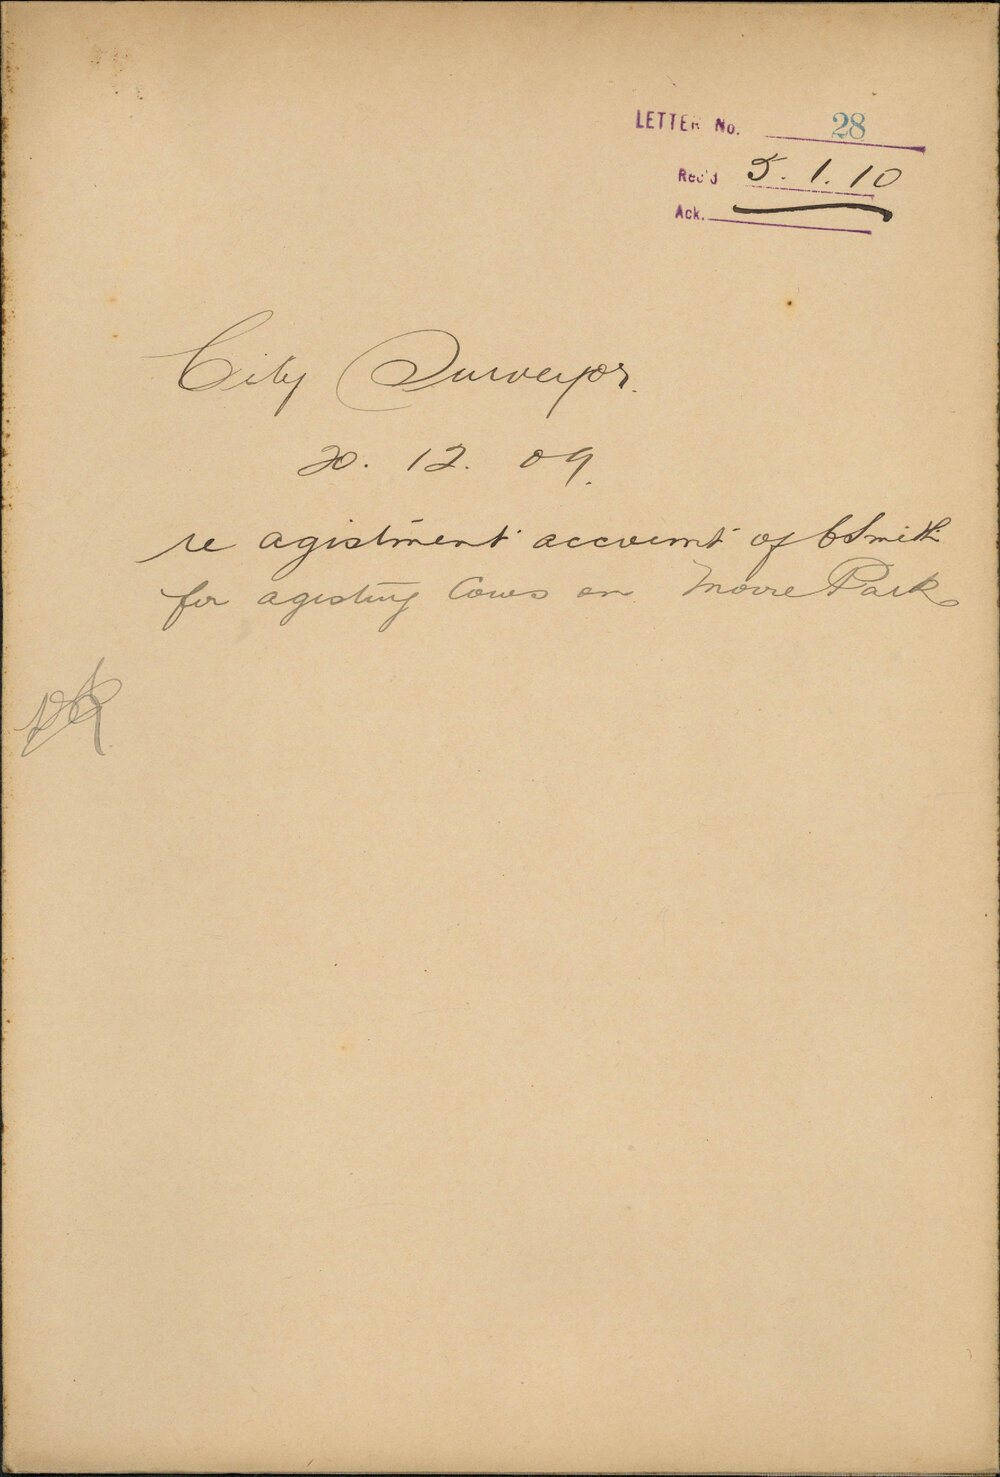 LETTER No. 28
Rec'd 5.1.10
Ack.
City Surveyor.
20. 12. 09.
re agistment account of C Smith
for agisting Cows on Moore Park